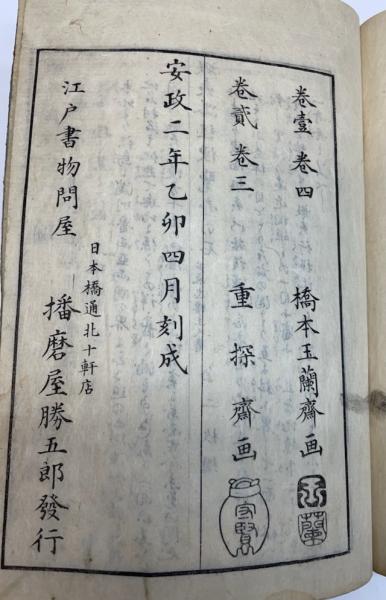 卷壹 卷四 橋本玉蘭齋画 玉蘭
卷貳 卷三 重探齋画 守賢
安政二年乙卯四月刻成
江戸書物問屋 日本橋通北十軒店 播磨屋勝五郎發行